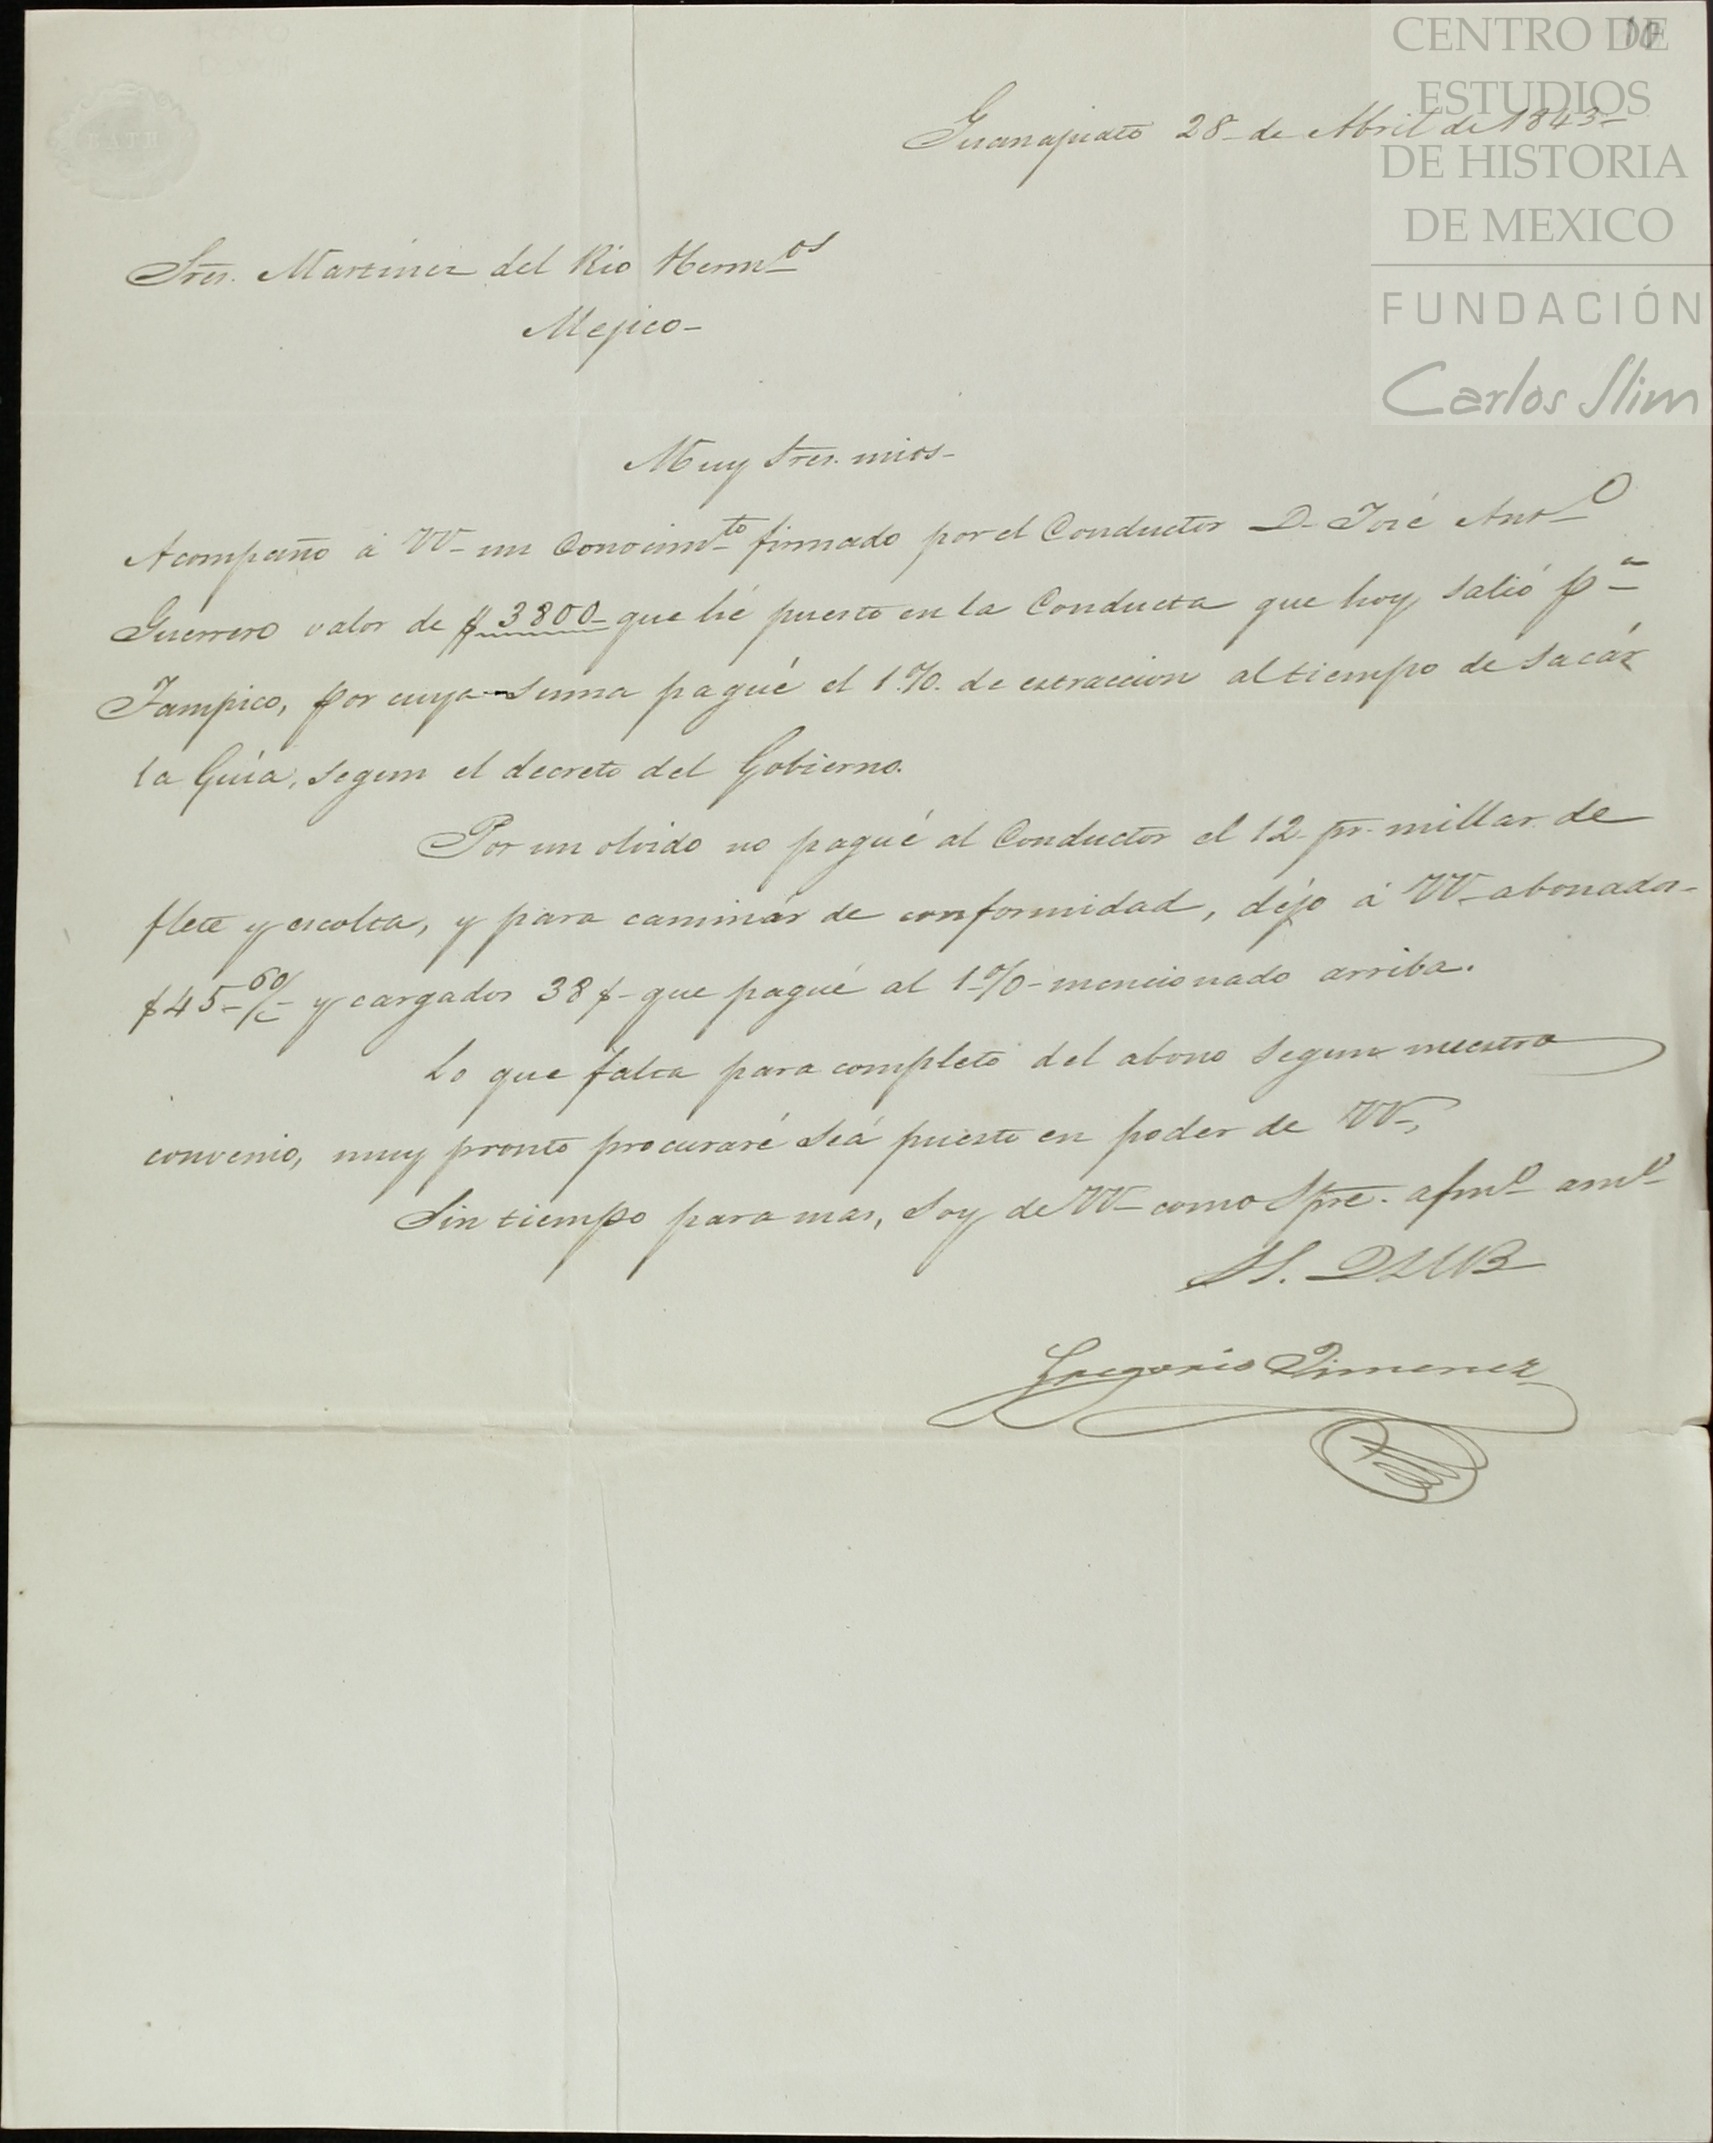 10
CENTRO DE
ESTUDIOS
DE HISTORIA
DE MEXICO
FUNDACIÓN
Carlos Slim
Guanajuato 28 de Abril de 1843
Sres. Martinez del Rio Herm.os
Mejico
Muy Sres. mios
Acompaño á VV un Conocim.to firmado por el Conductor D. José Ant.o
Guerrero valor de $ 3800 que hé puesto en la Conducta que hoy salió p.a
Tampico, por cuya suma pagué el 1.% de extraccion al tiempo de sacár
la Guía, segun el decreto del Gobierno.
Por un olvido no pagué al Conductor el 12 pr. millar de
flete y escolta, y para caminár de conformidad, déjo á VV abonados
$ 45 60/c y cargados 38 $ que pagué al 1% mencionado arriba.
Lo que falta para completo del abono segun nuestro
convenio, muy pronto procuraré seá puesto en poder de VV,
Sin tiempo para mas, soy de VV como Spre. afmo amo
S. Q S M B
Gregorio Jimenez